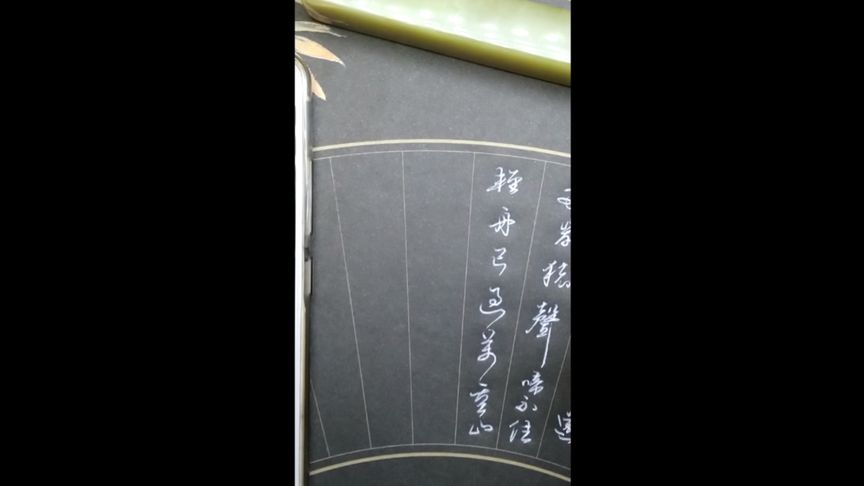 還
岸猿聲啼不住
輕舟已過萬重山